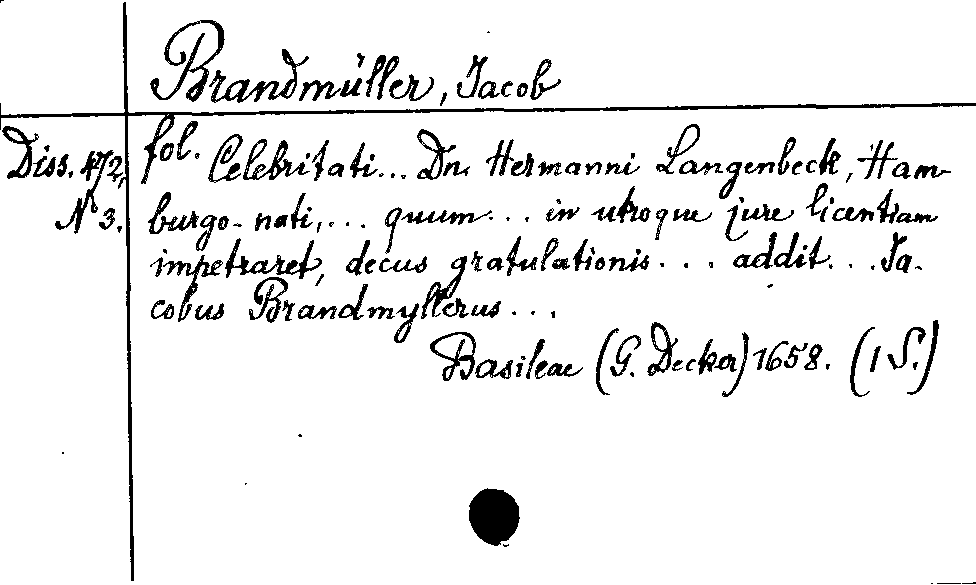 Brandmüller, Jacob
Diss. 472, fol. Celebritati... Dn. Hermanni Langenbeck, Ham-
No 3. burgo-nati,... quum... in utroque jure licentiam
impetraret, decus gratulationis... addit... Ja-
cobus Brandmyllerus...
Basileae (G. Decker) 1658. (1 S.)